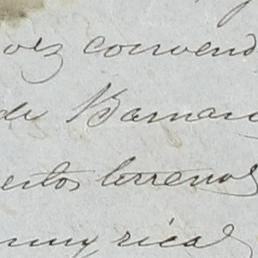 vez convend
de Barnar
estos terrenos
muy ricas